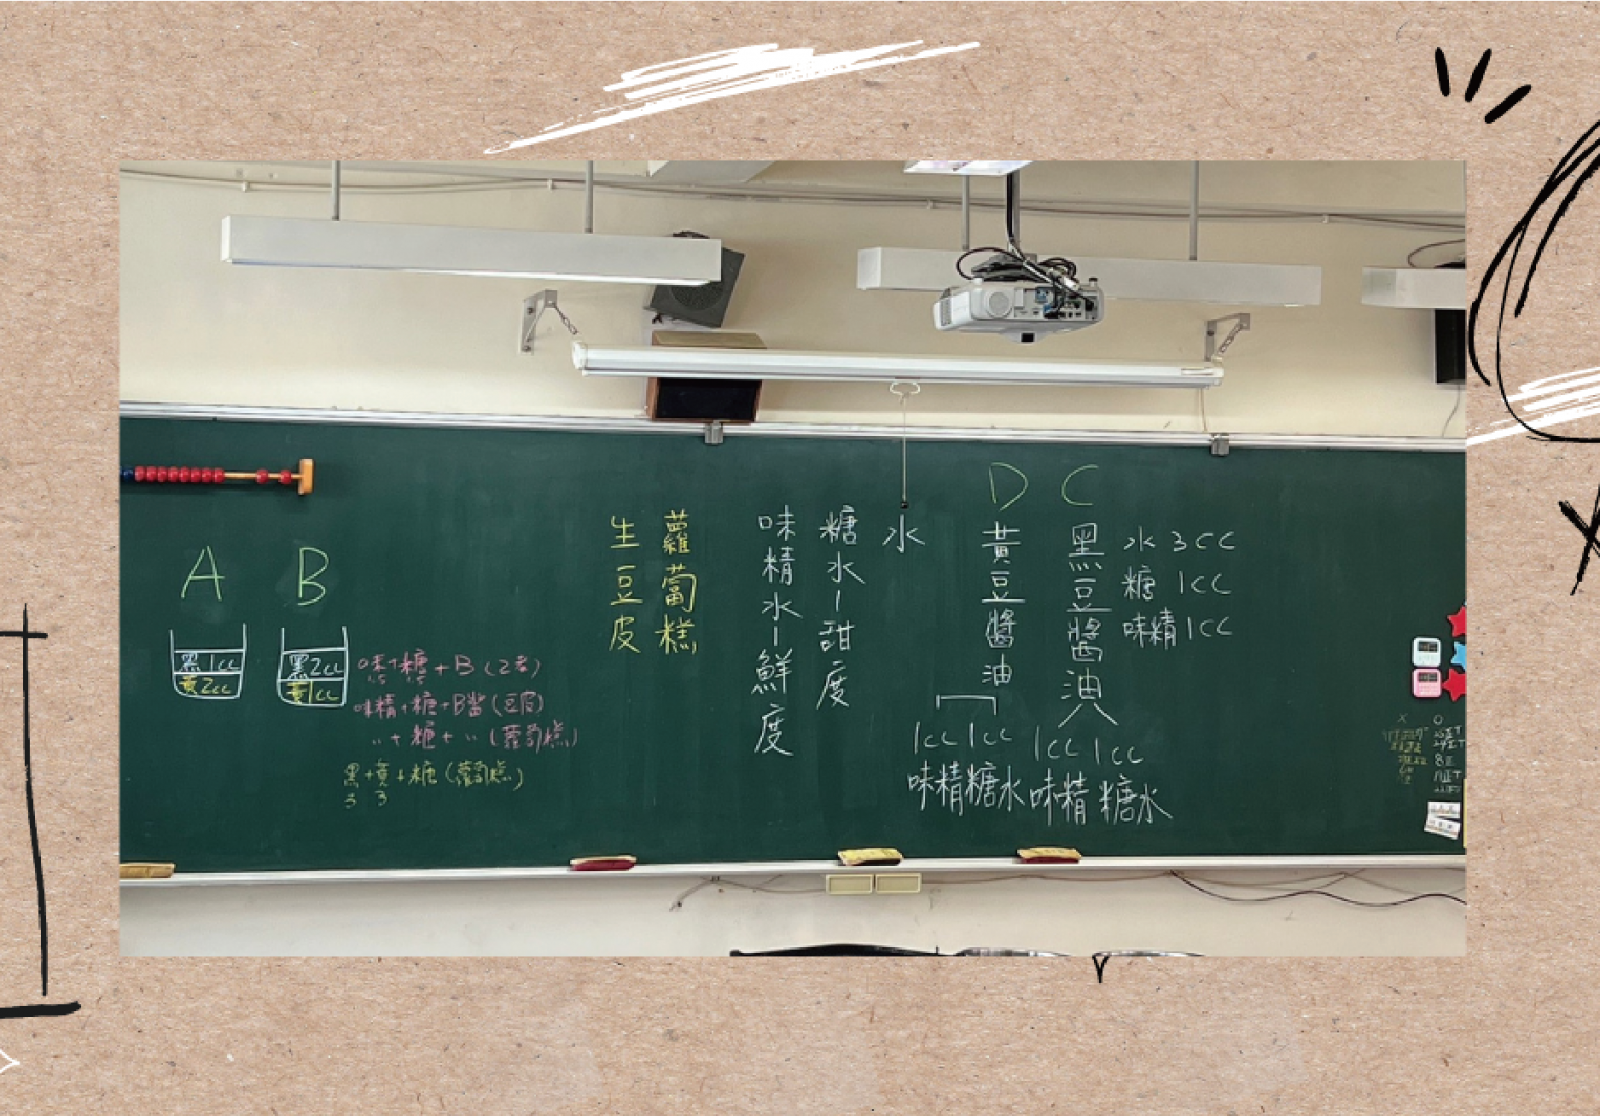 A
黑1cc
黃2cc
B
黑2cc
黃1cc
味+糖+B(2者)
味精+糖+B醬(豆皮)
〃+糖+〃(蘿蔔糕)
黑+黃+糖(蘿蔔糕)
3 3
蘿蔔糕
生豆皮
水
糖水-甜度
味精水-鮮度
D
黃豆醬油
1cc 1cc
味精 糖水
C
黑豆醬油
1cc 1cc
味精 糖水
水 3cc
糖 1cc
味精 1cc
X O